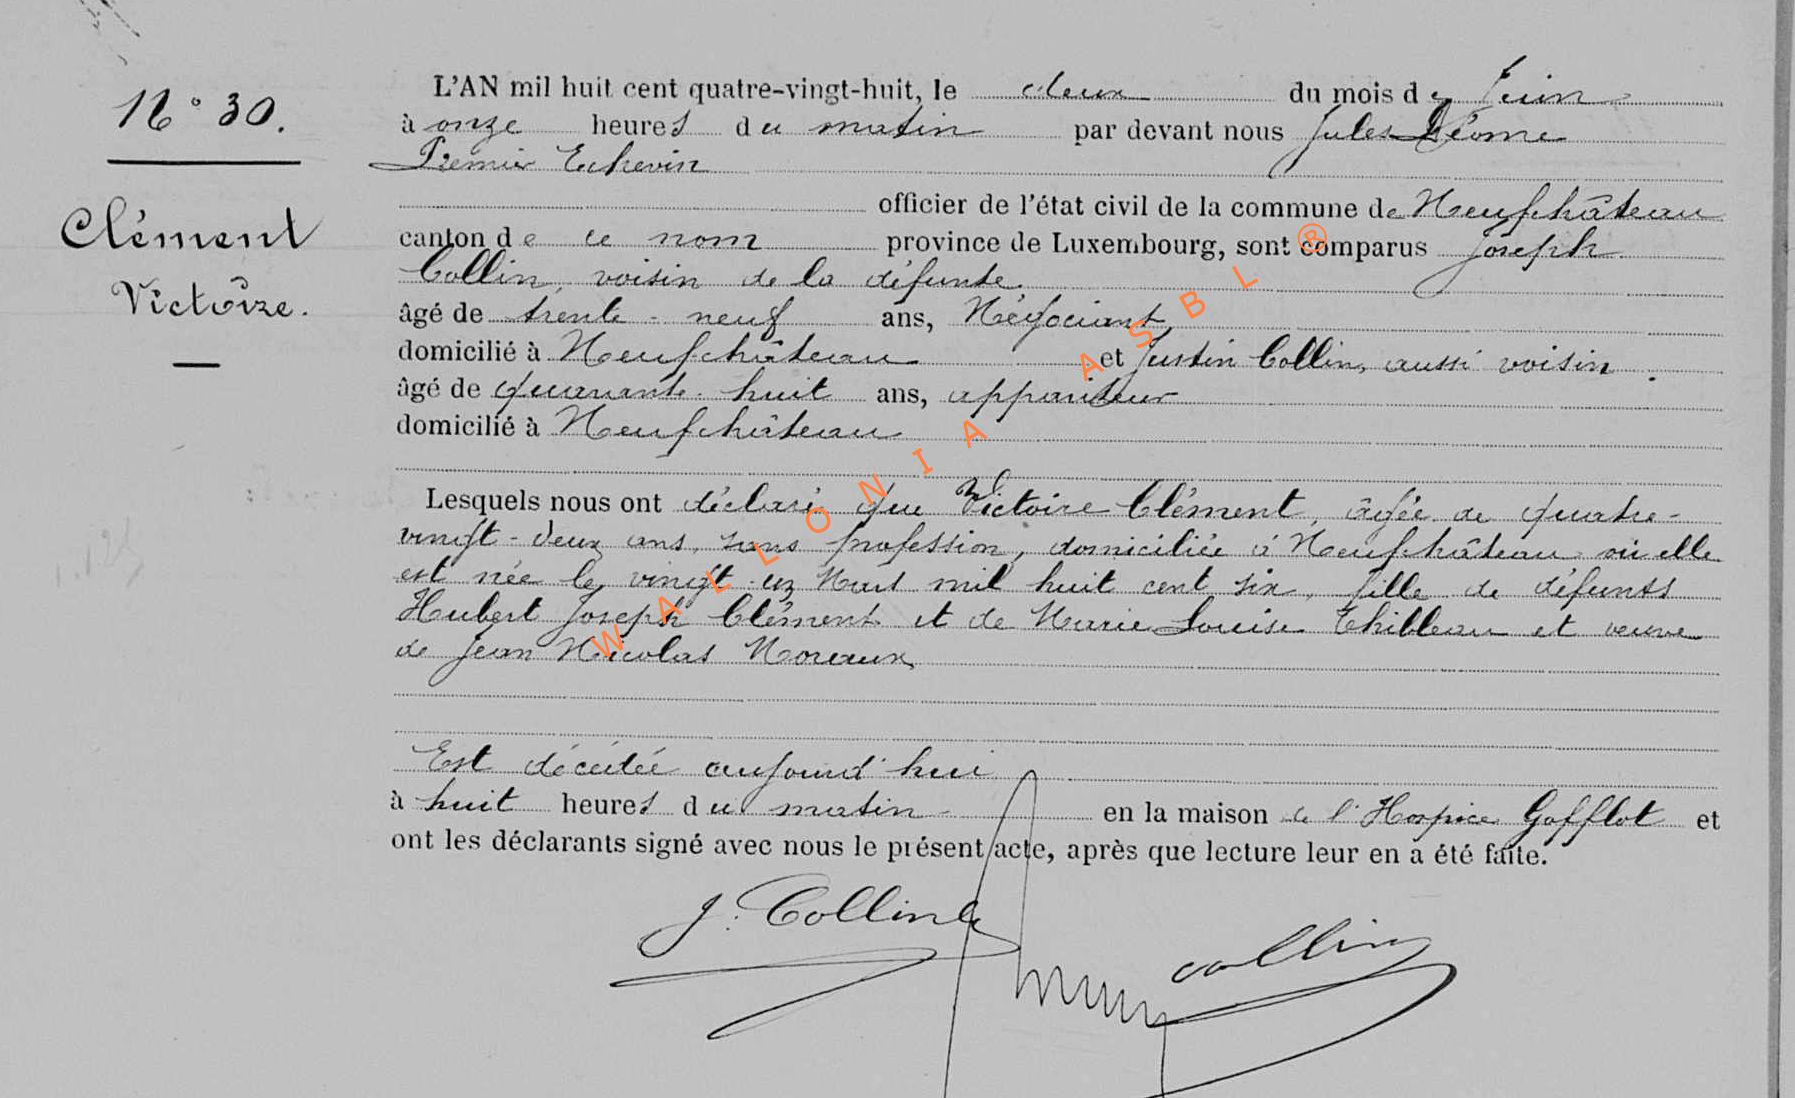 N° 30.
Clément
Victoire.
L'AN mil huit cent quatre-vingt-huit, le deux du mois de Juin
à onze heures du matin par devant nous Jules
Premier Echevin
officier de l'état civil de la commune de Neufchâteau
canton de ce nom province de Luxembourg, sont comparus Joseph
Collin, voisin de la défunte
âgé de trente-neuf ans, Négociant
domicilié à Neufchâteau et Justin Collin, aussi voisin
âgé de quarante-huit ans, appariteur
domicilié à Neufchâteau
Lesquels nous ont déclaré que Victoire Clément, âgée de quatre-
vingt-deux ans, sans profession, domiciliée à Neufchâteau où elle
est née le vingt Mars mil huit cent six, fille de défunts
Hubert Joseph Clément et de Marie Louise Thibleau et veuve
de Jean Nicolas Moreaux
Est décédée aujourd'hui
à huit heures du matin en la maison de l'Hospice Gofflot et
ont les déclarants signé avec nous le présent acte, après que lecture leur en a été faite.
J. Collin
Collin
WALLONIA ASBL ®